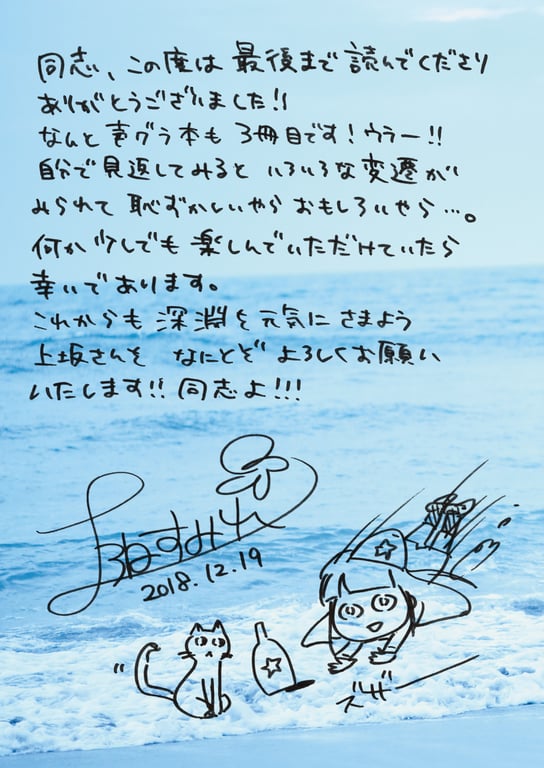 同志、この度は最後まで読んでくださり
ありがとうございました!!
なんと声グラ本も3冊目です!ウラー!!
自分で見返してみるといろいろな変遷が
みられて恥ずかしいやらおもしろいやら…。
何か少しでも楽しんでいただけていたら
幸いであります。
これからも深淵を元気にさまよう
上坂さんをなにとぞよろしくお願い
いたします!!同志よ!!!
うえさかすみれ
2018.12.19
ズザー